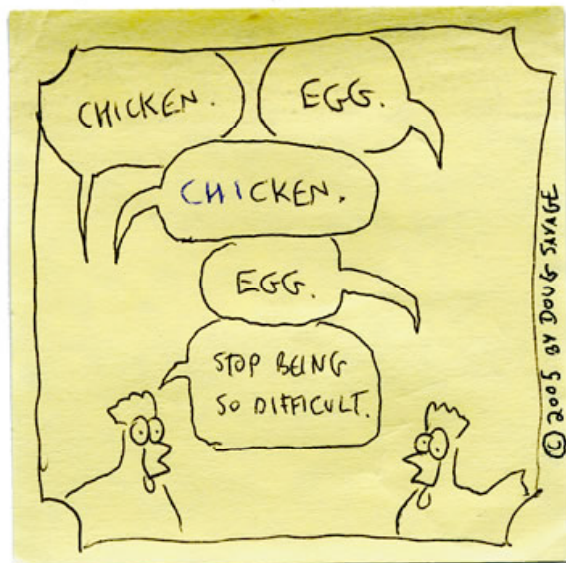 CHICKEN.
EGG.
CHICKEN.
EGG.
STOP BEING
SO DIFFICULT.
© 2005 BY DOUG SAVAGE